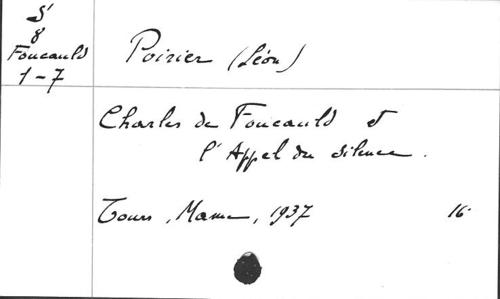 S'
8
Foucauld
1-7
Poirier (Léon)
Charles de Foucauld et
l'Appel du silence.
Tours, Mame, 1937 16°